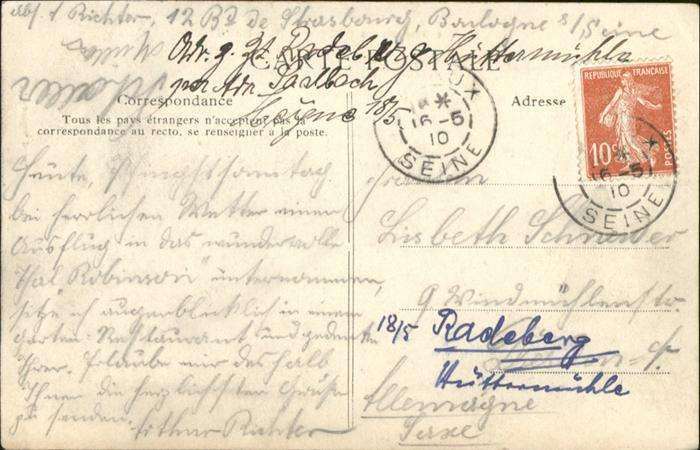 abs. Richter, 12 Bd de Strasbourg, Boulogne s/Seine
CARTE POSTALE
Radeberg Hüttermühle
18/5
Correspondance
Tous les pays étrangers n'acceptent pas la
correspondance au recto, se renseigner à la poste.
Adresse
REPUBLIQUE FRANÇAISE
10c
POSTES
16-5
10
SEINE
16-5
10
SEINE
Heute, Pfingstsonntag
bei herrlichen Wetter einen
Ausflug in das wundervolle
Thal „Robinson" unternommen,
sitze ich augenblicklich in einem
Garten-Restaurant und gedenke
Ihrer. Erlaube mir deshalb
Ihnen die herzlichsten Grüße
zu senden.
Richter
Fräulein
Lisbeth Schneider
9 Windmühlenstr.
18/5 Radeberg
Hüttermühle
Allemagne
Saxe